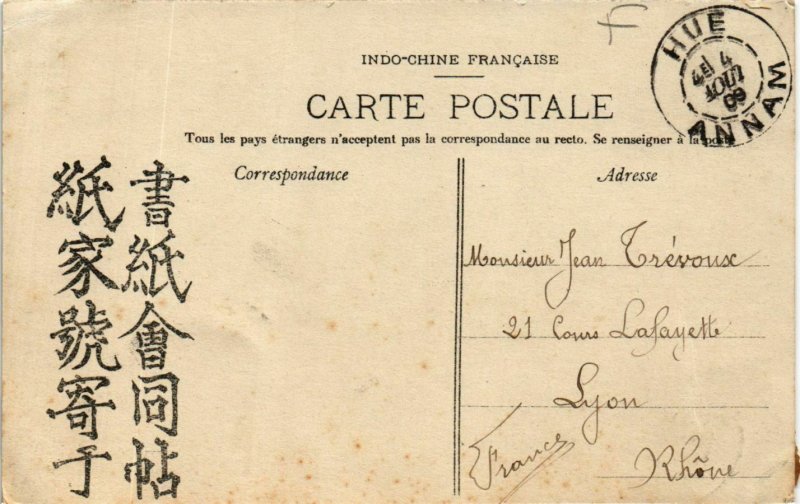 INDO-CHINE FRANÇAISE
CARTE POSTALE
Tous les pays étrangers n'acceptent pas la correspondance au recto. Se renseigner à la poste
HUE
4 AOUT
09
ANNAM
Correspondance
書紙會同帖
紙家號寄于
Adresse
Monsieur Jean Trévoux
21 Cours Lafayette
Lyon
(France)
Rhône